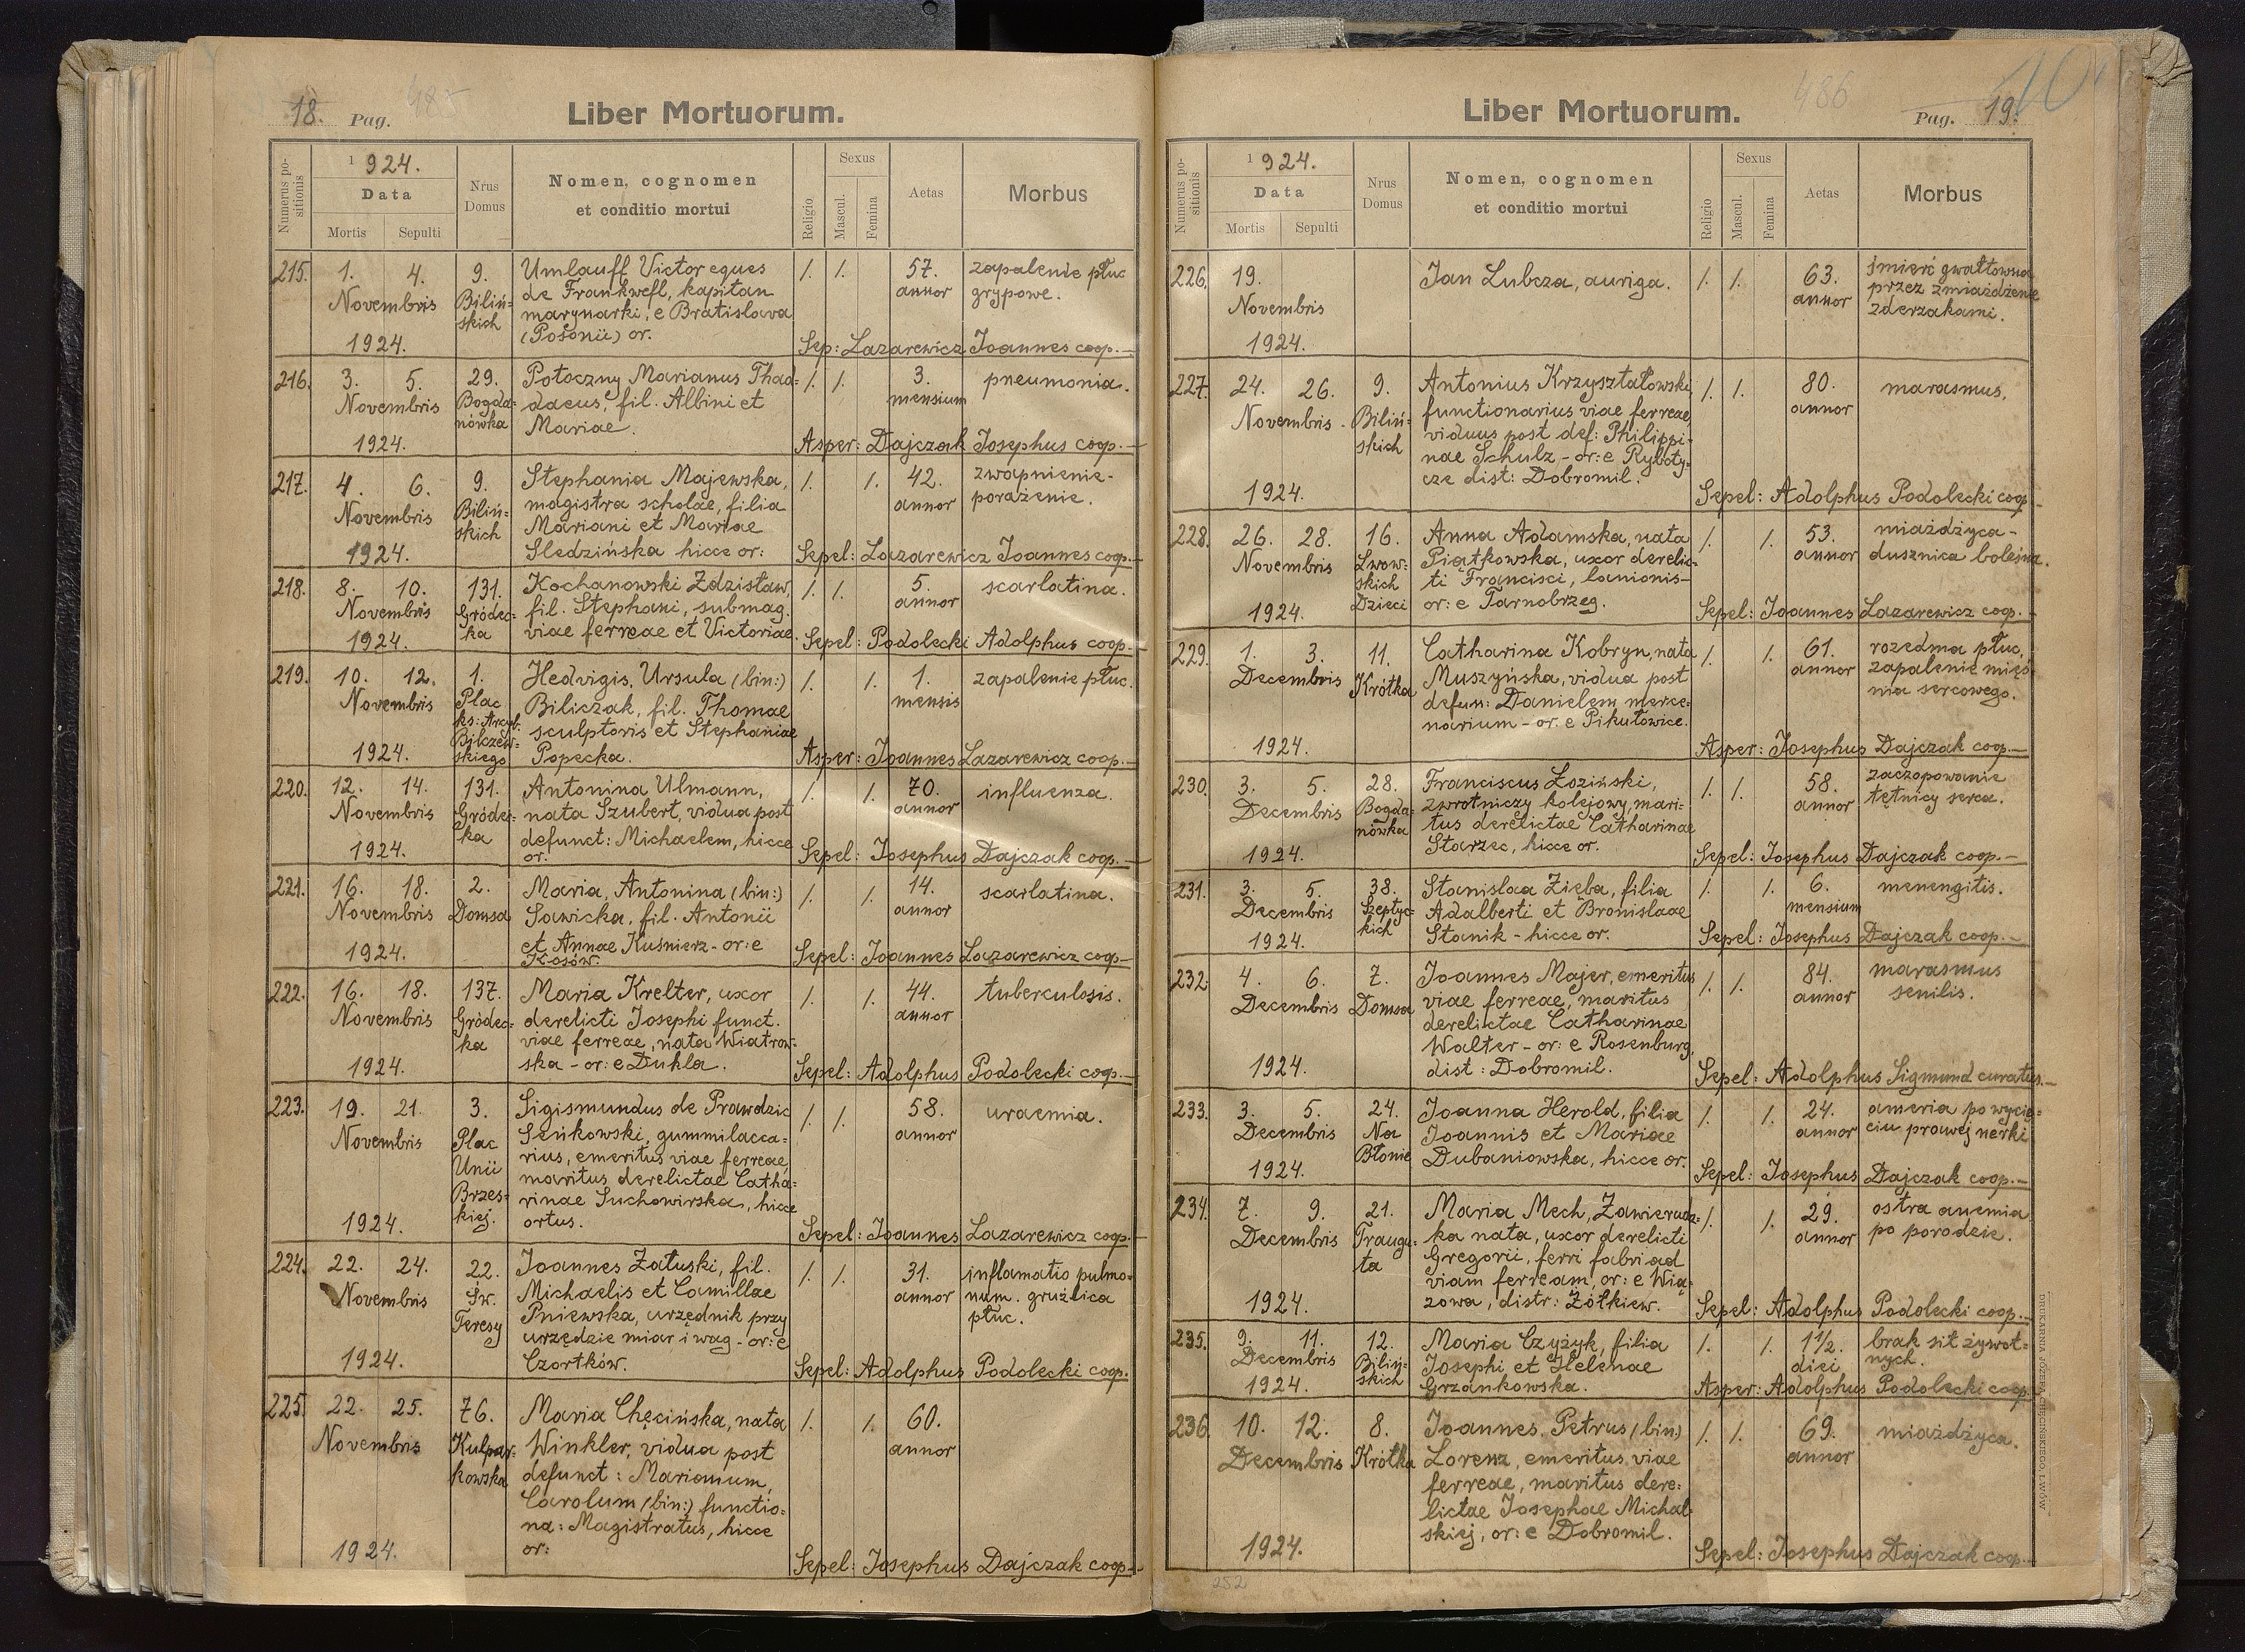 18. Pag. 485
Liber Mortuorum.
Numerus positionis
1924.
Data
Mortis Sepulti
Nrus Domus
Nomen, cognomen
et conditio mortui
Religio
Sexus
Mascul.
Femina
Aetas
Morbus
215. 1. 4. 9. Umlauff Victor eques /. /. 57. zapalenie płuc
Novembris Biliń- de Frankwefl, kapitan annor grypowe.
skich marynarki, e Bratislava
1924. (Posonii) or. Sep: Lazarewicz Joannes coop.—
216. 3. 5. 29. Potoczny Marianus Thad- /. /. 3. pneumonia.
Novembris Bogda- daeus, fil. Albini et mensium
nówka Mariae.
1924. Asper: Dajczak Josephus coop.—
217. 4. 6. 9. Stephania Majewska, /. /. 42. zwapnienie-
Novembris Biliń- magistra scholae, filia annor porażenie.
skich Mariani et Mariae
1924. Sledzińska hicce or: Sepel: Lazarewicz Joannes coop.—
218. 8. 10. 131. Kochanowski Zdzisław, /. /. 5. scarlatina.
Novembris Gródec- fil. Stephani, submag. annor
1924. ka viae ferreae et Victoriae. Sepel: Podolecki Adolphus coop.—
219. 10. 12. 1. Hedvigis, Ursula (bin:) /. /. 1. zapalenie płuc.
Novembris Plac Biliczak, fil. Thomae mensis
ks: Arcyb. sculptoris et Stephaniae
1924. Bilczew- skiego Popecka. Asper: Joannes Lazarewicz coop.—
220. 12. 14. 131. Antonina Ulmann, /. /. 70. influenza.
Novembris Gródec- nata Szubert, vidua post annor
ka defunct: Michaelem, hicce
1924. or. Sepel: Josephus Dajczak coop.—
221. 16. 18. 2. Maria, Antonina (bin:) /. /. 14. scarlatina.
Novembris Domsa Sawicka, fil. Antonii annor
et Annae Kuśnierz - or: e
1924. Kosów. Sepel: Joannes Lazarewicz coop—
222. 16. 18. 137. Maria Krelter, uxor /. /. 44. tuberculosis.
Novembris Gródec- derelicti Josephi funct. annor
ka viae ferreae, nata Wiatrow-
1924. ska - or: e Dukla. Sepel: Adolphus Podolecki coop.—
223. 19. 21. 3. Sigismundus de Prawdzic /. /. 58. uraemia.
Novembris Plac Seńkowski, gummilacca- annor
Unii rius, emeritus viae ferreae,
maritus derelictae Catha-
Brzes- rinae Suchowirska, hicce
1924. kiej. ortus. Sepel: Joannes Lazarewicz coop.—
224. 22. 24. 22. Joannes Załuski, fil. /. /. 31. inflamatio pulmo-
Novembris Św. Michaelis et Camillae annor num. gruźlica
Teresy Pniewska, urzędnik przy płuc.
urzędzie miar i wag - or: e
1924. Czortków. Sepel: Adolphus Podolecki coop.
225. 22. 25. 76. Maria Chęcińska, nata /. /. 60.
Novembris Kulpar- Winkler, vidua post annor
kowska defunct: Marianum,
Carolum (bin:) functio-
na: Magistratus, hicce
1924. or: Sepel: Josephus Dajczak coop—
486
Liber Mortuorum.
Pag. 19.
Numerus positionis
1924.
Data
Mortis Sepulti
Nrus Domus
Nomen, cognomen
et conditio mortui
Religio
Sexus
Mascul.
Femina
Aetas
Morbus
226. 19. Jan Lubcza, auriga. /. /. 63. śmierć gwałtowna
Novembris annor przez zmiażdżenie
zderzakami.
1924.
227. 24. 26. 9. Antonius Krzyształowski, /. /. 80. marasmus,
Novembris. Biliń- functionarius viae ferreae, annor
skich viduus post def: Philippi-
nae Schulz - or: e Ryboty-
1924. cze dist: Dobromil. Sepel: Adolphus Podolecki coop
228. 26. 28. 16. Anna Adamska, nata /. /. 53. miażdżyca-
Novembris Lwow- Piątkowska, uxor derelic- annor dusznica bolesna.
skich ti Francisci, lanionis-
1924. Dzieci or: e Tarnobrzeg. Sepel: Joannes Lazarewicz coop.—
229. 1. 3. 11. Catharina Kobryn, nata /. /. 61. rozedma płuc,
Decembris Krótka Muszyńska, vidua post annor zapalenie mięś-
defun: Danielem merce- nia sercowego.
narium - or. e Pikułowice.
1924. Asper: Josephus Dajczak coop.—
230. 3. 5. 28. Franciscus Łoziński, /. /. 58. zaczopowanie
Decembris Bogda- zwrotniczy kolejowy, mari- annor tętnicy serca.
nówka tus derelictae Catharinae
1924. Starzec, hicce or. Sepel: Josephus Dajczak coop.—
231. 3. 5. 38. Stanislaa Zięba, filia /. /. 6. menengitis.
Decembris Szeptyc- Adalberti et Bronislaae mensium
1924. kich Stanik - hicce or. Sepel: Josephus Dajczak coop.—
232. 4. 6. 7. Joannes Majer, emeritus /. /. 84. marasmus
Decembris Domsa viae ferreae, maritus annor senilis.
derelictae Catharinae
Walter - or: e Rosenburg,
1924. dist: Dobromil. Sepel: Adolphus Sigmund curatus.—
233. 3. 5. 24. Joanna Herold, filia /. /. 24. ameria po wycię-
Decembris Na Joannis et Mariae annor ciu prawej nerki
1924. Błonie Dubaniowska, hicce or. Sepel: Josephus Dajczak coop.—
234. 7. 9. 21. Maria Mech, Zawieruca- /. /. 29. ostra anemia
Decembris Traugu- ka nata, uxor derelicti annor po porodzie.
ta Gregorii, ferri fabri ad
viam ferream, or: e Wią-
1924. zowa, distr: Żółkiew. Sepel: Adolphus Podolecki coop.—
235. 9. 11. 12. Maria Czyżyk, filia /. /. 1½. brak sił żywot-
Decembris Biliń- Josephi et Helenae diei nych.
1924. skich Grzankowska. Asper: Adolphus Podolecki coop.
236. 10. 12. 8. Joannes, Petrus (bin:) /. /. 69. miażdżyca.
Decembris Krótka Lorenz, emeritus viae annor
ferreae, maritus dere-
lictae Josephae Michal-
skiej, or: e Dobromil.
1924. Sepel: Josephus Dajczak coop.—
252
DRUKARNIA JÓZEFA CHĘCIŃSKIEGO, LWÓW